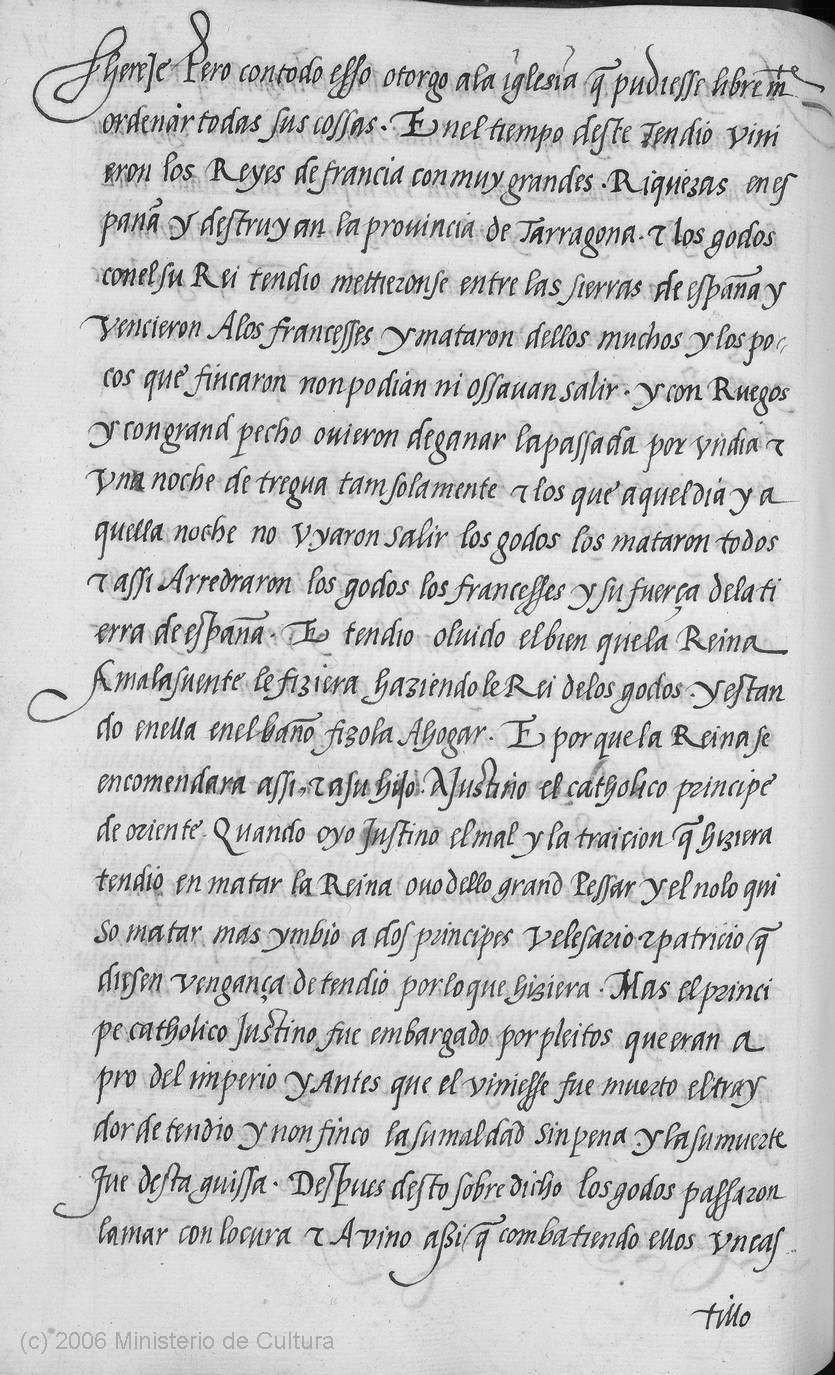 hereje Pero contodo esso otorgo ala iglesia q̃ pudiesse libre mte
ordenar todas sus cossas. E nel tiempo deste Tendio vini
eron los Reyes de francia con muy grandes. Riquezas en es
pana y destruyan la provincia de Tarragona. τ los godos
con el su Rei tendio mettieronse entre las sierras de espana y
vencieron Alos francesses y mataron dellos muchos y los po-
cos que fincaron non podian ni ossauan salir. y con Ruegos
y con grand pecho ovieron de ganar la passada por vn dia τ
vna noche de tregua tam solamente τ los que aquel dia y a
quella noche no vyaron salir los godos los mataron todos
τ assi Arredraron los godos los francesses y su fuerça dela ti
erra de espana. E tendio oluido el bien que la Reina
Amalasuente le fiziera haziendo le Rei delos godos. y estan
do en ella en el baño fizola Ahogar. E por que la Reina se
encomendara assi, τ a su hijo. A Justino el catholico principe
de oriente. Quando oyo Justino el mal y la traicion q̃ hiziera
tendio en matar la Reina ovo dello grand Pessar y el no lo qui
so matar mas ymbio a dos principes Velesario τ patricio q̃
diesen vengança de tendio por lo que hiziera. Mas el princi
pe catholico Justino fue embargado por pleitos que eran a
pro del imperio y Antes que el viniesse fue muerto el tray
dor de tendio y non finco la su maldad sin pena y la su muerte
fue desta guissa. Despues desto sobre dicho los godos passaron
la mar con locura τ A vino assi q̃ combatiendo ellos vn cas
tillo
(c) 2006 Ministerio de Cultura